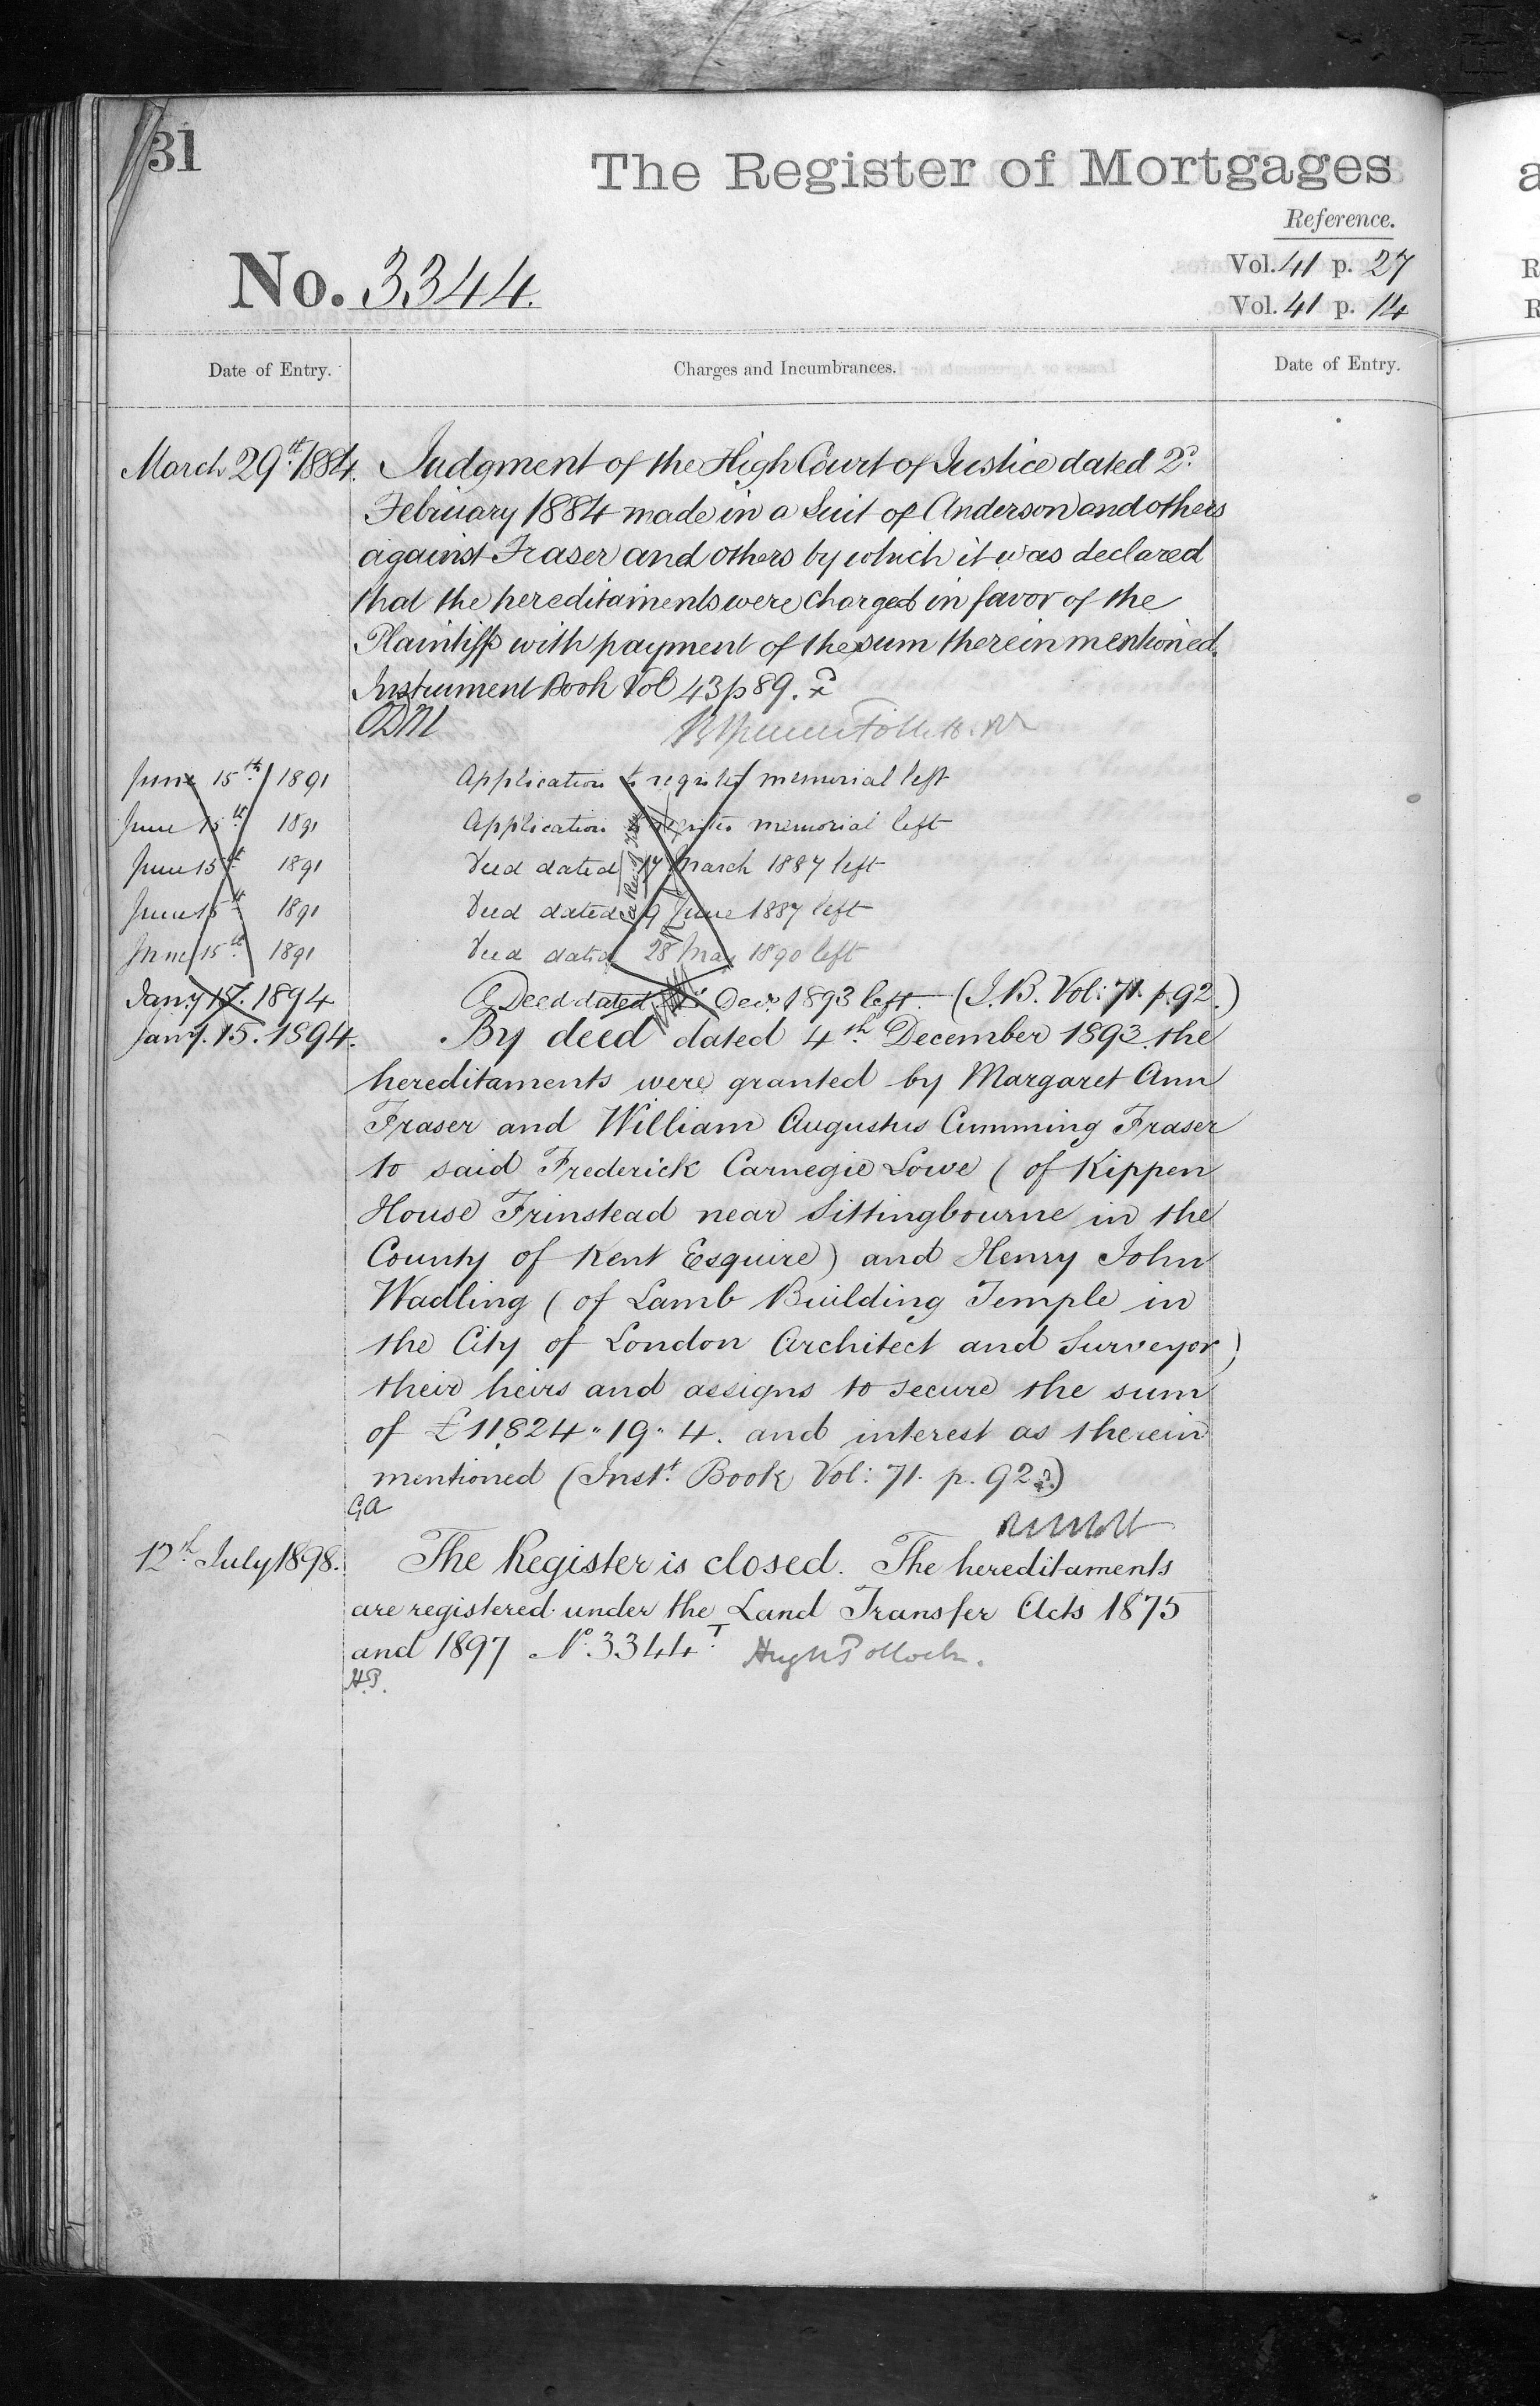 31
The Register of Mortgages
Reference.
Vol. 41 p. 27
No. 3344.
Vol. 41 p. 14
Date of Entry. Charges and Incumbrances. Date of Entry.
March 29th 1884. Judgment of the High Court of Justice dated 2d
February 1884 made in a Suit of Anderson and others
against Fraser and others by which it was declared
that the hereditaments were charged in favor of the
Plaintiffs with payment of the sum therein mentioned.
Instrument Book Vol 43 p 89.
June 15th 1891 Application to register memorial left
June 15th 1891 Application to register memorial left
June 15th 1891 Deed dated 17 March 1887 left
June 15th 1891 Deed dated 9 June 1887 left
June 15th 1891 Deed dated 28 May 1890 left
Jany 17. 1894 A Deed dated Decr 1893 left (I.B. Vol: 71. p. 92.)
Jany. 15. 1894. By deed dated 4th December 1893 the
hereditaments were granted by Margaret Ann
Fraser and William Augustus Cumming Fraser
to said Frederick Carnegie Lowe (of Kippen
House Frinstead near Sittingbourne in the
County of Kent Esquire) and Henry John
Wadling (of Lamb Building Temple in
the City of London Architect and Surveyor)
their heirs and assigns to secure the sum
of £11824"19"4. and interest as therein
mentioned (Instt. Book Vol: 71. p. 92.)
GA
12th July 1898. The Register is closed. The hereditaments
are registered under the Land Transfer Acts 1875
and 1897 No. 3344T. Hugh Pollock.
H.P.